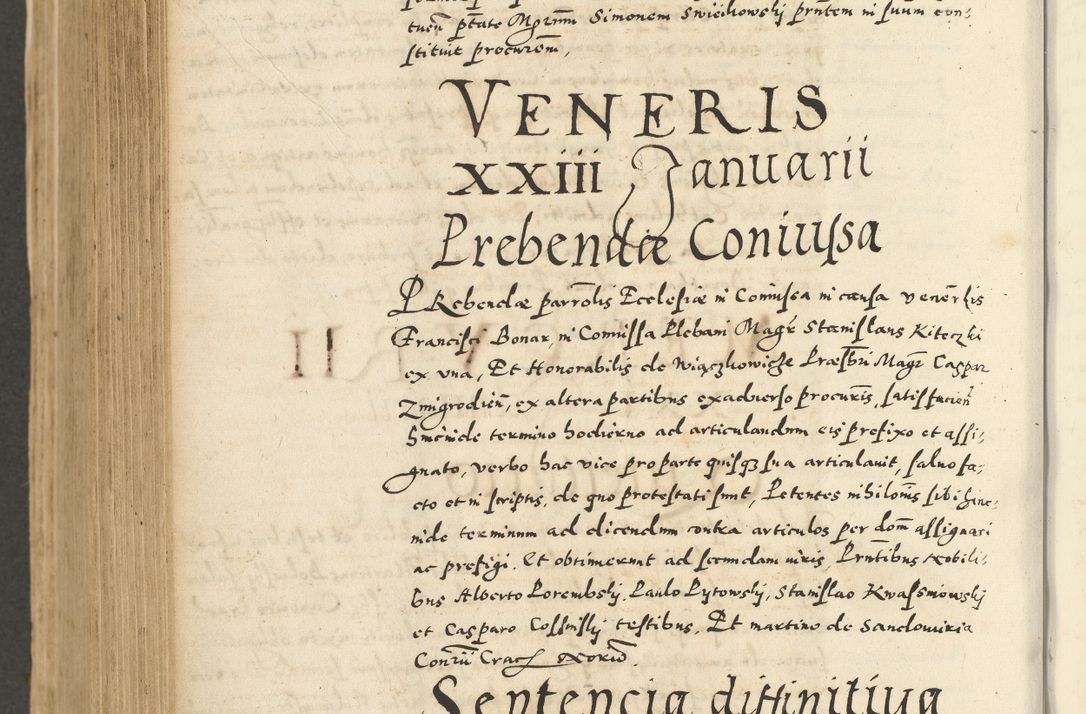 tuen ptate Mgrum Simonem Swiechowskj prntem in suum con=
stituit procurem,
VENERIS
XXIII Januarii
Prebendæ Coniussa
PRebendæ parrolis Ecclesiæ in Coniussa in causa venerlis
Francisci Bonar, in Coniussa Plebani Magr Stanislaus Kiteczki
ex una, Et Honorabilis de Wiączkowicze Præsbri Magr Caspar
Zmigrodien, ex altera partibus exadverso procuris, satisfacien
hincinde termino hodierno ad articulandum eis prefixo et assi,
gnato, verbo hac vice pro parte quisq3 sua articulavit, salvo fa,
cto et in scriptis, de quo protestati sunt, Petentes nihilonis sibi hinc,
inde terminum ad dicendum contra articulos per dom assignari
ac prefigi. Et obtinuerunt ad secundam iuris, Prntibus Nobili,
bus Alberto Porembskj, Paulo Pytowskj, Stanislao Kwasniowskj
et Casparo Cossinskj testibus, Et martino de Sandomiria
Concii Crac Norio.
Sentencia diffinitiva